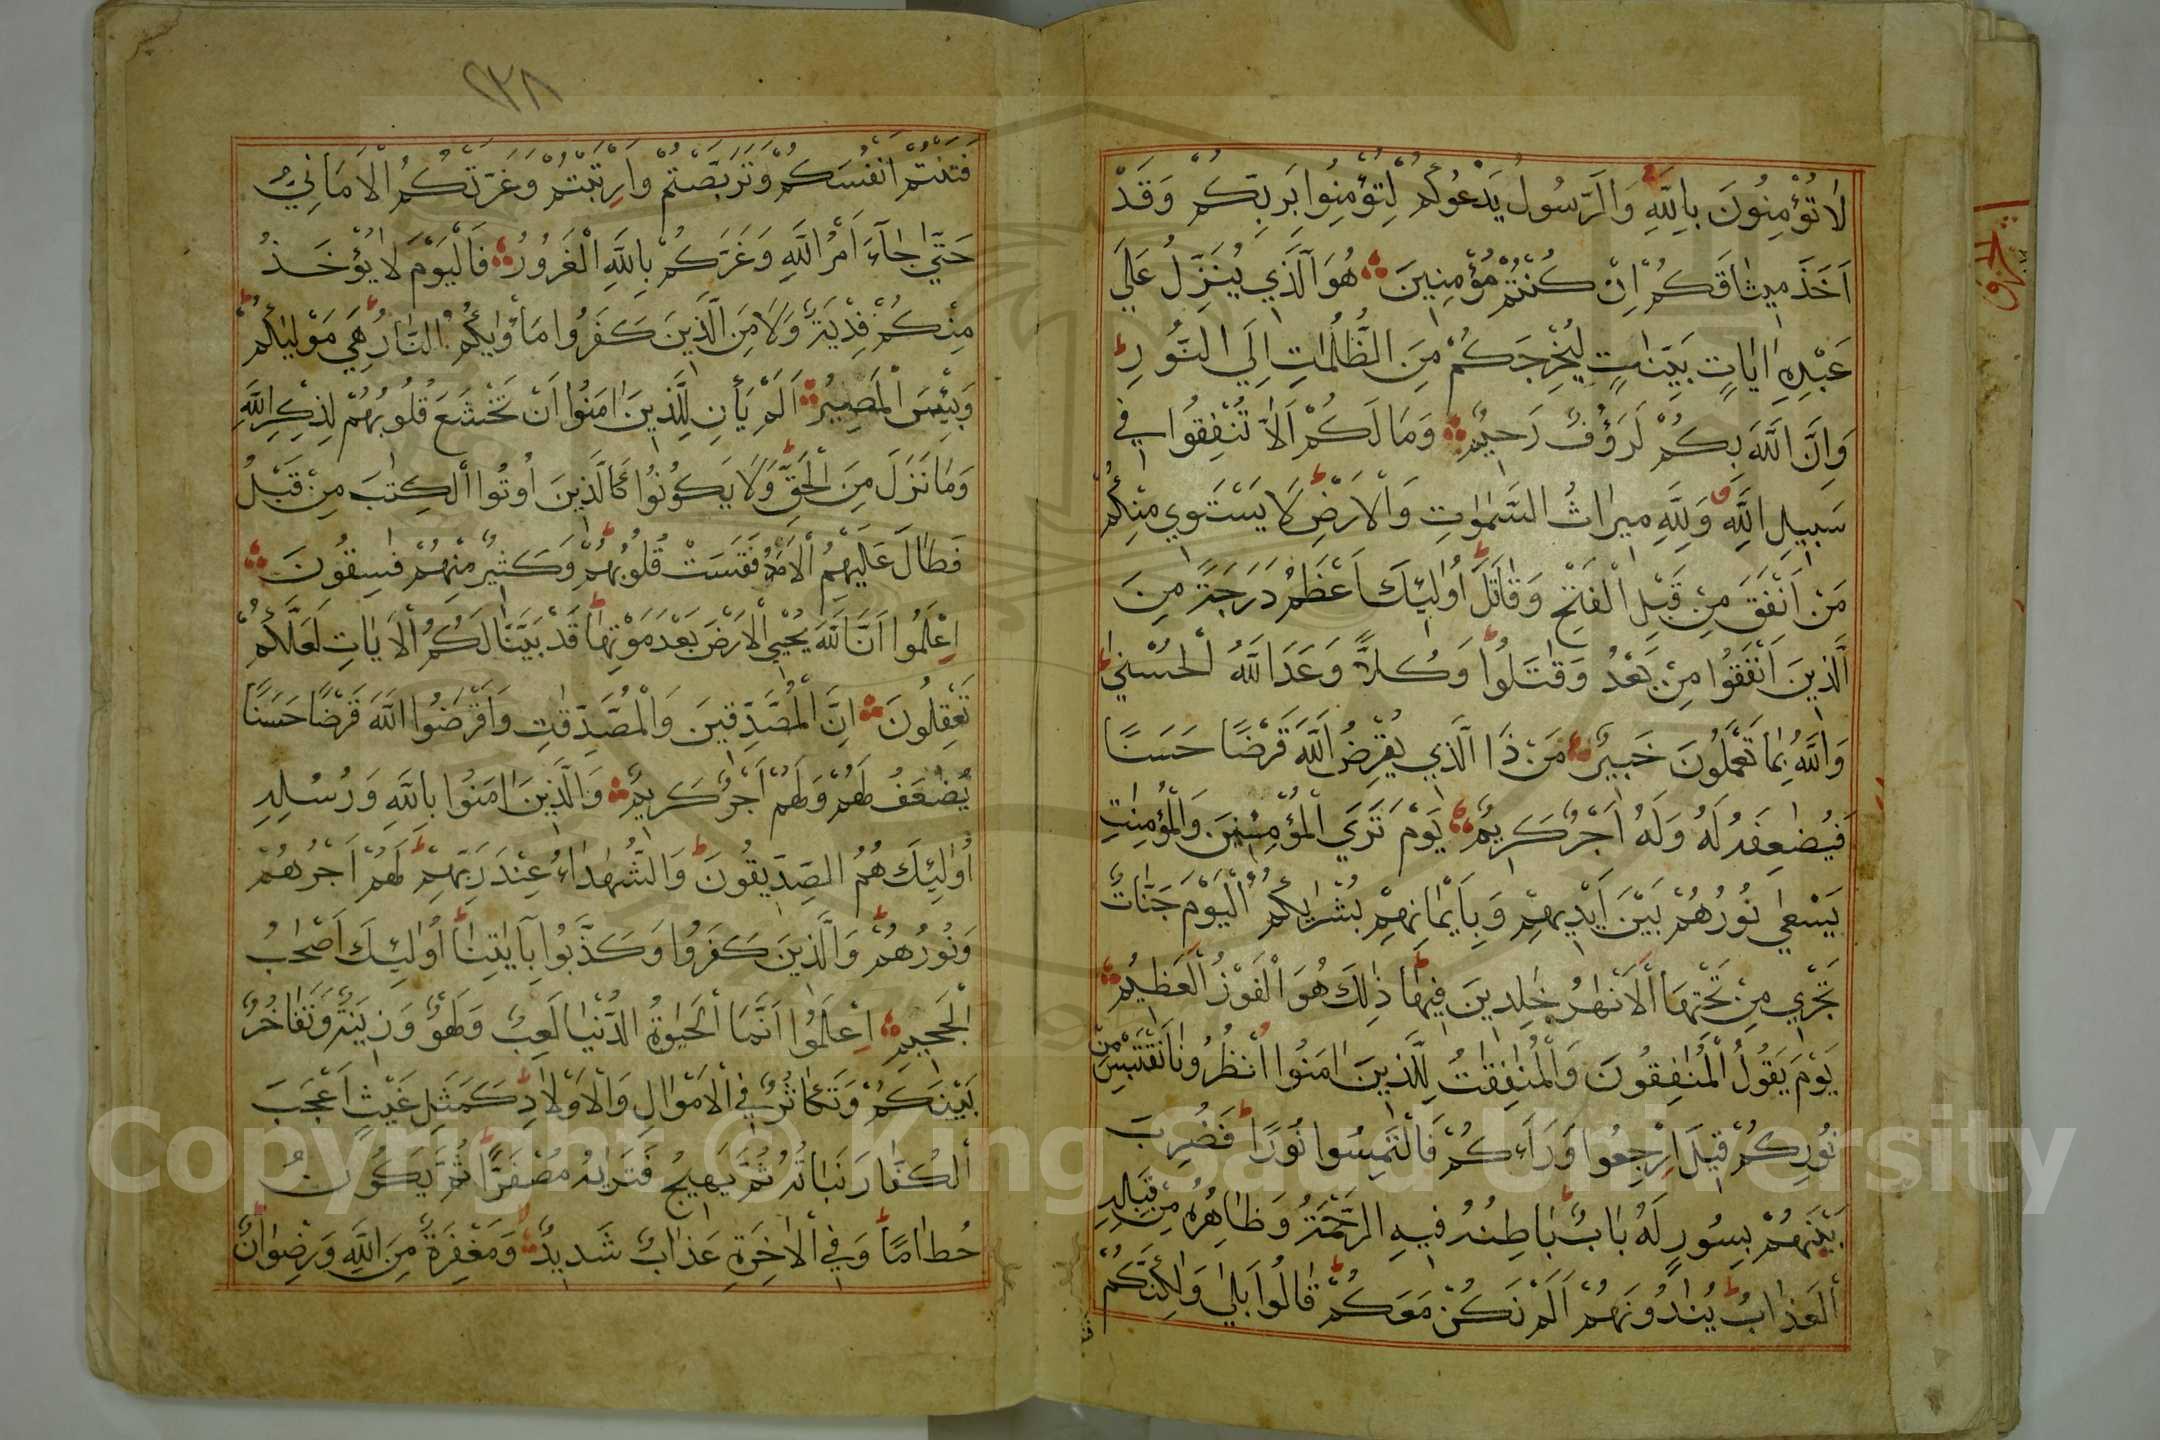 لَا تُؤْمِنُونَ بِاللّٰهِ وَالرَّسُولُ يَدْعُوكُمْ لِتُؤْمِنُوا بِرَبِّكُمْ وَقَدْ
اَخَذَ مِيثَاقَكُمْ اِنْ كُنْتُمْ مُؤْمِنِينَ هُوَ الَّذِي يُنَزِّلُ عَلَي
عَبْدِهِ اٰيَاتٍ بَيِّنَاتٍ لِيُخْرِجَكُمْ مِنَ الظُّلُمَاتِ اِلَي النُّورِ ط
وَاِنَّ اللّٰهَ بِكُمْ لَرَؤُفٌ رَحِيمٌ وَمَا لَكُمْ اَلَّا تُنْفِقُوا فِي
سَبِيلِ اللّٰهِ وَلِلّٰهِ مِيرَاثُ السَّمٰوٰتِ وَالْاَرْضِ ط لَا يَسْتَوِي مِنْكُمْ
مَنْ اَنْفَقَ مِنْ قَبْلِ الْفَتْحِ وَقَاتَلَ ط اُولٰئِكَ اَعْظَمُ دَرَجَةً مِنَ
الَّذِينَ اَنْفَقُوا مِنْ بَعْدُ وَقَاتَلُوا ط وَكُلًّا وَعَدَ اللّٰهُ الْحُسْنٰي ط
وَاللّٰهُ بِمَا تَعْمَلُونَ خَبِيرٌ مَنْ ذَا الَّذِي يُقْرِضُ اللّٰهَ قَرْضًا حَسَنًا
فَيُضَاعِفَهُ لَهُ وَلَهُ اَجْرٌ كَرِيمٌ يَوْمَ تَرَي الْمُؤْمِنِينَ وَالْمُؤْمِنَاتِ
يَسْعٰي نُورُهُمْ بَيْنَ اَيْدِيهِمْ وَبِاَيْمَانِهِمْ بُشْرٰيكُمُ الْيَوْمَ جَنَّاتٌ
تَجْرِي مِنْ تَحْتِهَا الْاَنْهَارُ خَالِدِينَ فِيهَا ط ذٰلِكَ هُوَ الْفَوْزُ الْعَظِيمُ
يَوْمَ يَقُولُ الْمُنَافِقُونَ وَالْمُنَافِقَاتُ لِلَّذِينَ اٰمَنُوا انْظُرُونَا نَقْتَبِسْ مِنْ
نُورِكُمْ قِيلَ ارْجِعُوا وَرَاءَكُمْ فَالْتَمِسُوا نُورًا ط فَضُرِبَ
بَيْنَهُمْ بِسُورٍ لَهُ بَابٌ ط بَاطِنُهُ فِيهِ الرَّحْمَةُ وَظَاهِرُهُ مِنْ قِبَلِهِ
الْعَذَابُ ط يُنَادُونَهُمْ اَلَمْ نَكُنْ مَعَكُمْ ط قَالُوا بَلٰي وَلٰكِنَّكُمْ
فَتَنْتُمْ اَنْفُسَكُمْ وَتَرَبَّصْتُمْ وَارْتَبْتُمْ وَغَرَّتْكُمُ الْاَمَانِيُّ
حَتّٰي جَآءَ اَمْرُ اللّٰهِ وَغَرَّكُمْ بِاللّٰهِ الْغَرُورُ فَالْيَوْمَ لَا يُؤْخَذُ
مِنْكُمْ فِدْيَةٌ وَلَا مِنَ الَّذِينَ كَفَرُوا مَأْوٰيكُمُ النَّارُ ط هِيَ مَوْلٰيكُمْ ط
وَبِئْسَ الْمَصِيرُ اَلَمْ يَأْنِ لِلَّذِينَ اٰمَنُوا اَنْ تَخْشَعَ قُلُوبُهُمْ لِذِكْرِ اللّٰهِ
وَمَا نَزَلَ مِنَ الْحَقِّ ط وَلَا يَكُونُوا كَالَّذِينَ اُوتُوا الْكِتٰبَ مِنْ قَبْلُ
فَطَالَ عَلَيْهِمُ الْاَمَدُ فَقَسَتْ قُلُوبُهُمْ ط وَكَثِيرٌ مِنْهُمْ فٰسِقُونَ
اِعْلَمُوا اَنَّ اللّٰهَ يُحْيِي الْاَرْضَ بَعْدَ مَوْتِهَا ط قَدْ بَيَّنَّا لَكُمُ الْاٰيَاتِ لَعَلَّكُمْ
تَعْقِلُونَ اِنَّ الْمُصَّدِّقِينَ وَالْمُصَّدِّقٰتِ وَاَقْرَضُوا اللّٰهَ قَرْضًا حَسَنًا
يُضٰعَفُ لَهُمْ وَلَهُمْ اَجْرٌ كَرِيمٌ وَالَّذِينَ اٰمَنُوا بِاللّٰهِ وَرُسُلِهِ
اُولٰئِكَ هُمُ الصِّدِّيقُونَ ط وَالشُّهَدَاءُ عِنْدَ رَبِّهِمْ ط لَهُمْ اَجْرُهُمْ
وَنُورُهُمْ ط وَالَّذِينَ كَفَرُوا وَكَذَّبُوا بِاٰيَاتِنَا ط اُولٰئِكَ اَصْحَابُ
الْجَحِيمِ اِعْلَمُوا اَنَّمَا الْحَيٰوةُ الدُّنْيَا لَعِبٌ وَلَهْوٌ وَزِينَةٌ وَتَفَاخُرٌ
بَيْنَكُمْ وَتَكَاثُرٌ فِي الْاَمْوَالِ وَالْاَوْلَادِ ط كَمَثَلِ غَيْثٍ اَعْجَبَ
الْكُفَّارَ نَبَاتُهُ ثُمَّ يَهِيجُ فَتَرٰيهُ مُصْفَرًّا ط ثُمَّ يَكُونُ
حُطَامًا ط وَفِي الْاٰخِرَةِ عَذَابٌ شَدِيدٌ وَمَغْفِرَةٌ مِنَ اللّٰهِ وَرِضْوَانٌ ط
Copyright © King Saud University